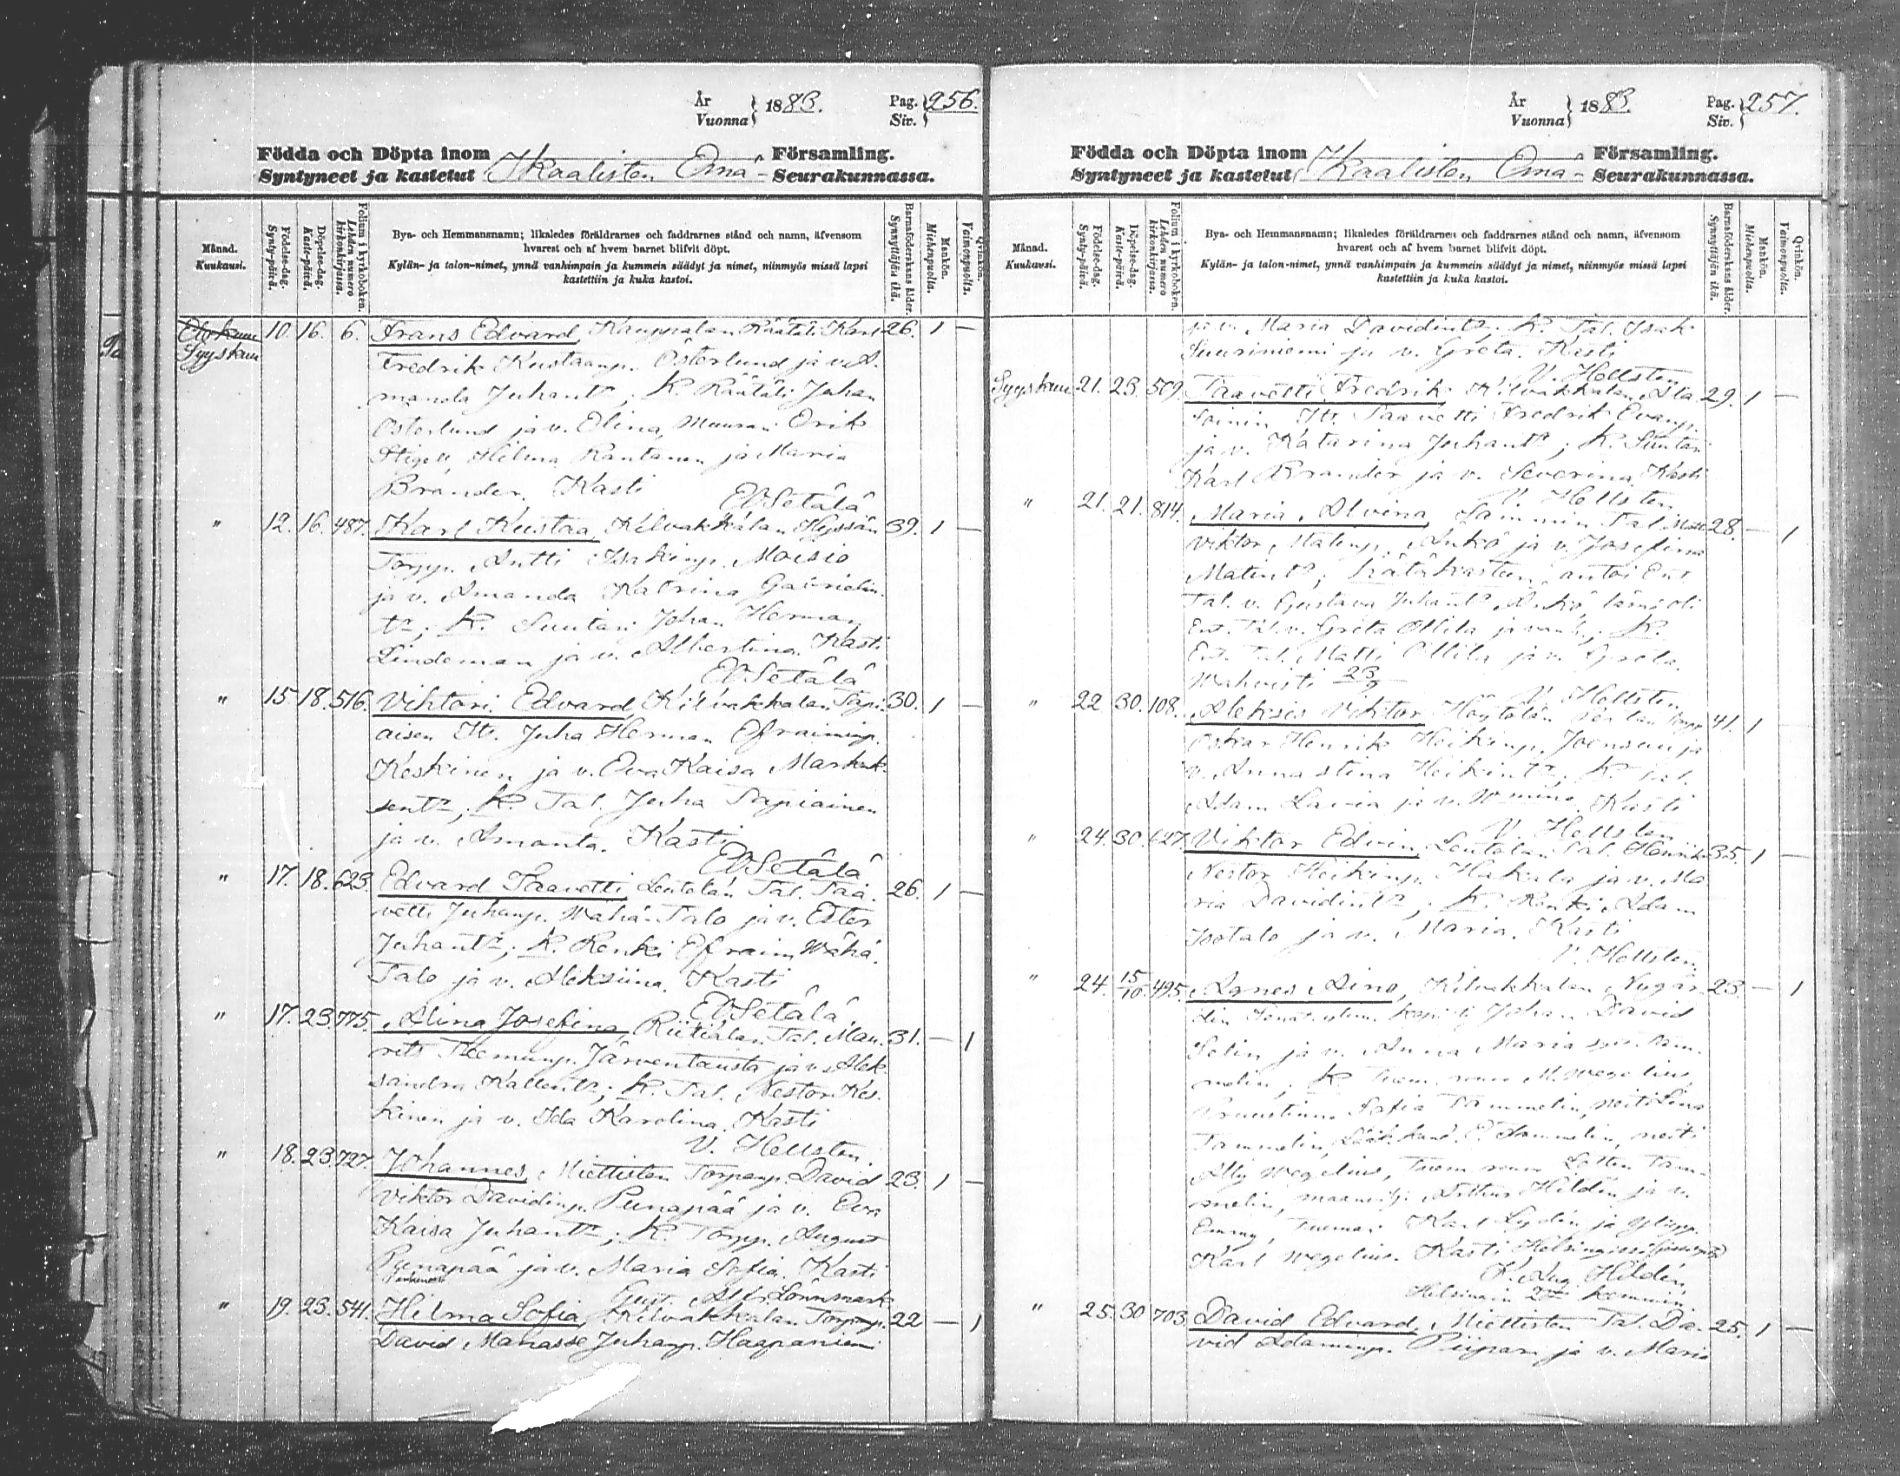 År
Vuonna } 1883. Pag. Siv. } 256.
Födda och Döpta inom
Syntyneet ja kastetut Ikaalisten Emä- Församling. Seurakunnassa.
Månad. Kuukausi.
Födelse-dag. Synty-päivä.
Döpelse-dag. Kaste-päivä.
Folium i kyrkoboken. Lehden numero kirkonkirjassa.
Bya- och Hemmansnamn; likaledes föräldrarnes och faddrarnes stånd och namn, äfvensom
hvarest och af hvem barnet blifvit döpt.
Kylän- ja talon-nimet, ynnä vanhimpain ja kummein säädyt ja nimet, niinmyös missä lapsi
kastettiin ja kuka kastoi.
Barnaföderskans ålder. Synnyttäjän ikä.
Mankön. Miehenpuolia.
Qvinkön. Vaimonpuolia.
Elokuu 10. 16. 6. Frans Edvard, Kauppalan Räätäli Karl 26. 1 —
Syyskuu
Fredrik Kustaanp. Österlund ja v. A-
manda Juhant; K. Räätäli Juhan
Österlund ja v. Elina, Muurari Erik
Hilma Rantanen ja Maria
Brander. Kasti
E Setälä
" 12. 16. 487. Karl Kustaa, Kilvakkalan Hyssän 39. 1 —
Torpp. Antti Isakinp. Moisio
ja v. Amanda Katrina Gabrielin-
tr; K. Suutari Johan Herman
Lindeman ja v. Albertina. Kasti
E Setälä
" 15. 18. 516. Vihtori Edvard, Kilvakkalan Tapi- 30. 1 —
aisen Itr. Juha Herman Efraiminp.
Keskinen ja v. Eva Kaisa Markuk-
sentr; K. Tal. Juha Tapiainen
ja v. Amanta. Kasti
E Setälä
" 17. 18. 623. Edvard Taavetti, Leutolan Tal. Taa- 26. 1 —
vetti Juhanp. Wähä-Talo ja v. Ester
Juhantr; K. Renki Efraim Wähä-
Talo ja v. Aleksiina. Kasti
E Setälä
" 17. 23. 775. Alina Josefina, Riitialan Tal. Mau- 31. — 1
rits Teemunp. Järventausta ja v. Alek-
sandra Kallentr; K. Tal. Nestor Kes-
kinen ja v. Ida Karolina. Kasti
V. Hellsten.
" 18. 23. 727. Johannes, Miettisten Torpanp. David 23. 1 —
Viktor Davidinp. Punapää ja v. Eva
Kaisa Juhantr; K. Torpp. August
Punapää ja v. Maria Sofia. Kasti
Gust. Alfr. Lönnmark
" 19. 23. 541. Hilma Sofia, Kilvakkalan Torpanp. 22 — 1
David Manasse Juhanp. Haapaniemi
År
Vuonna } 1883. Pag. Siv. } 257.
Födda och Döpta inom
Syntyneet ja kastetut Ikaalisten Emä- Församling. Seurakunnassa.
Månad. Kuukausi.
Födelse-dag. Synty-päivä.
Döpelse-dag. Kaste-päivä.
Folium i kyrkoboken. Lehden numero kirkonkirjassa.
Bya- och Hemmansnamn; likaledes föräldrarnes och faddrarnes stånd och namn, äfvensom
hvarest och af hvem barnet blifvit döpt.
Kylän- ja talon-nimet, ynnä vanhimpain ja kummein säädyt ja nimet, niinmyös missä lapsi
kastettiin ja kuka kastoi.
Barnaföderskans ålder. Synnyttäjän ikä.
Mankön. Miehenpuolia.
Qvinkön. Vaimonpuolia.
ja v. Maria Davidintr. K. Tal. Isak
Suuriniemi ja v. Greta. Kasti
V. Hellsten
Syyskuu 21. 23. 509. Taavetti Fredrik, Kilvakkalan 29. 1 —
Itr. Taavetti Fredrik
ja v. Katarina Juhantr; K. Suutari
Karl Brander ja v. Severina. Kasti
V. Hellsten
" 21. 21. 814. Maria Alvina, Sammin Tal. 28. — 1
Viktor Matinp. ja v. Josefina
Matintr; hätäkasteen antoi Ent.
Tal. v. Gustava Juhantr läsnä oli
Ent. Tal. v. Greta Ollila ja K.
Ent. Tal. Matti Ollila ja v. Greta.
Wahvisti 23/9
V. Hellsten
" 22 30. 108. Aleksis Viktor, Höytölän Torpp 41. 1
Oskar Henrik Heikinp. Joensuu ja
v. Annastina Heikintr; K. Tal.
Adam Lavia ja v. Kasti
V. Hellsten
" 24. 30. 627. Viktor Edvin, Leutolan Tal. Henrik 35. 1 —
Nestor Heikinp. Hakala ja v. Ma-
ria Davidintr; K. Renki Adam
Isotalo ja v. Maria. Kasti
V. Hellsten
" 24. 15/10. 495. Agnes Aino, Kilvakkalan 23. — 1
Johan David
Selin ja v. Anna Maria Tam-
melin; K. M. Wegelius,
Sofia Tammelin, neiti Lina
Tammelin, Tammelin, neiti
Ally Wegelius, Lotten Tam-
melin, Arthur Hildén ja v.
Emmy, Tuomari Karl Lydén ja
Karl Wegelius. Kasti Helsingissä
K. Aug. Hildén,
Helsingin
" 25. 30 703. David Edvard, Miettisten Tal. Da- 25. 1 —
vid Adaminp. Piipari ja v. Maria